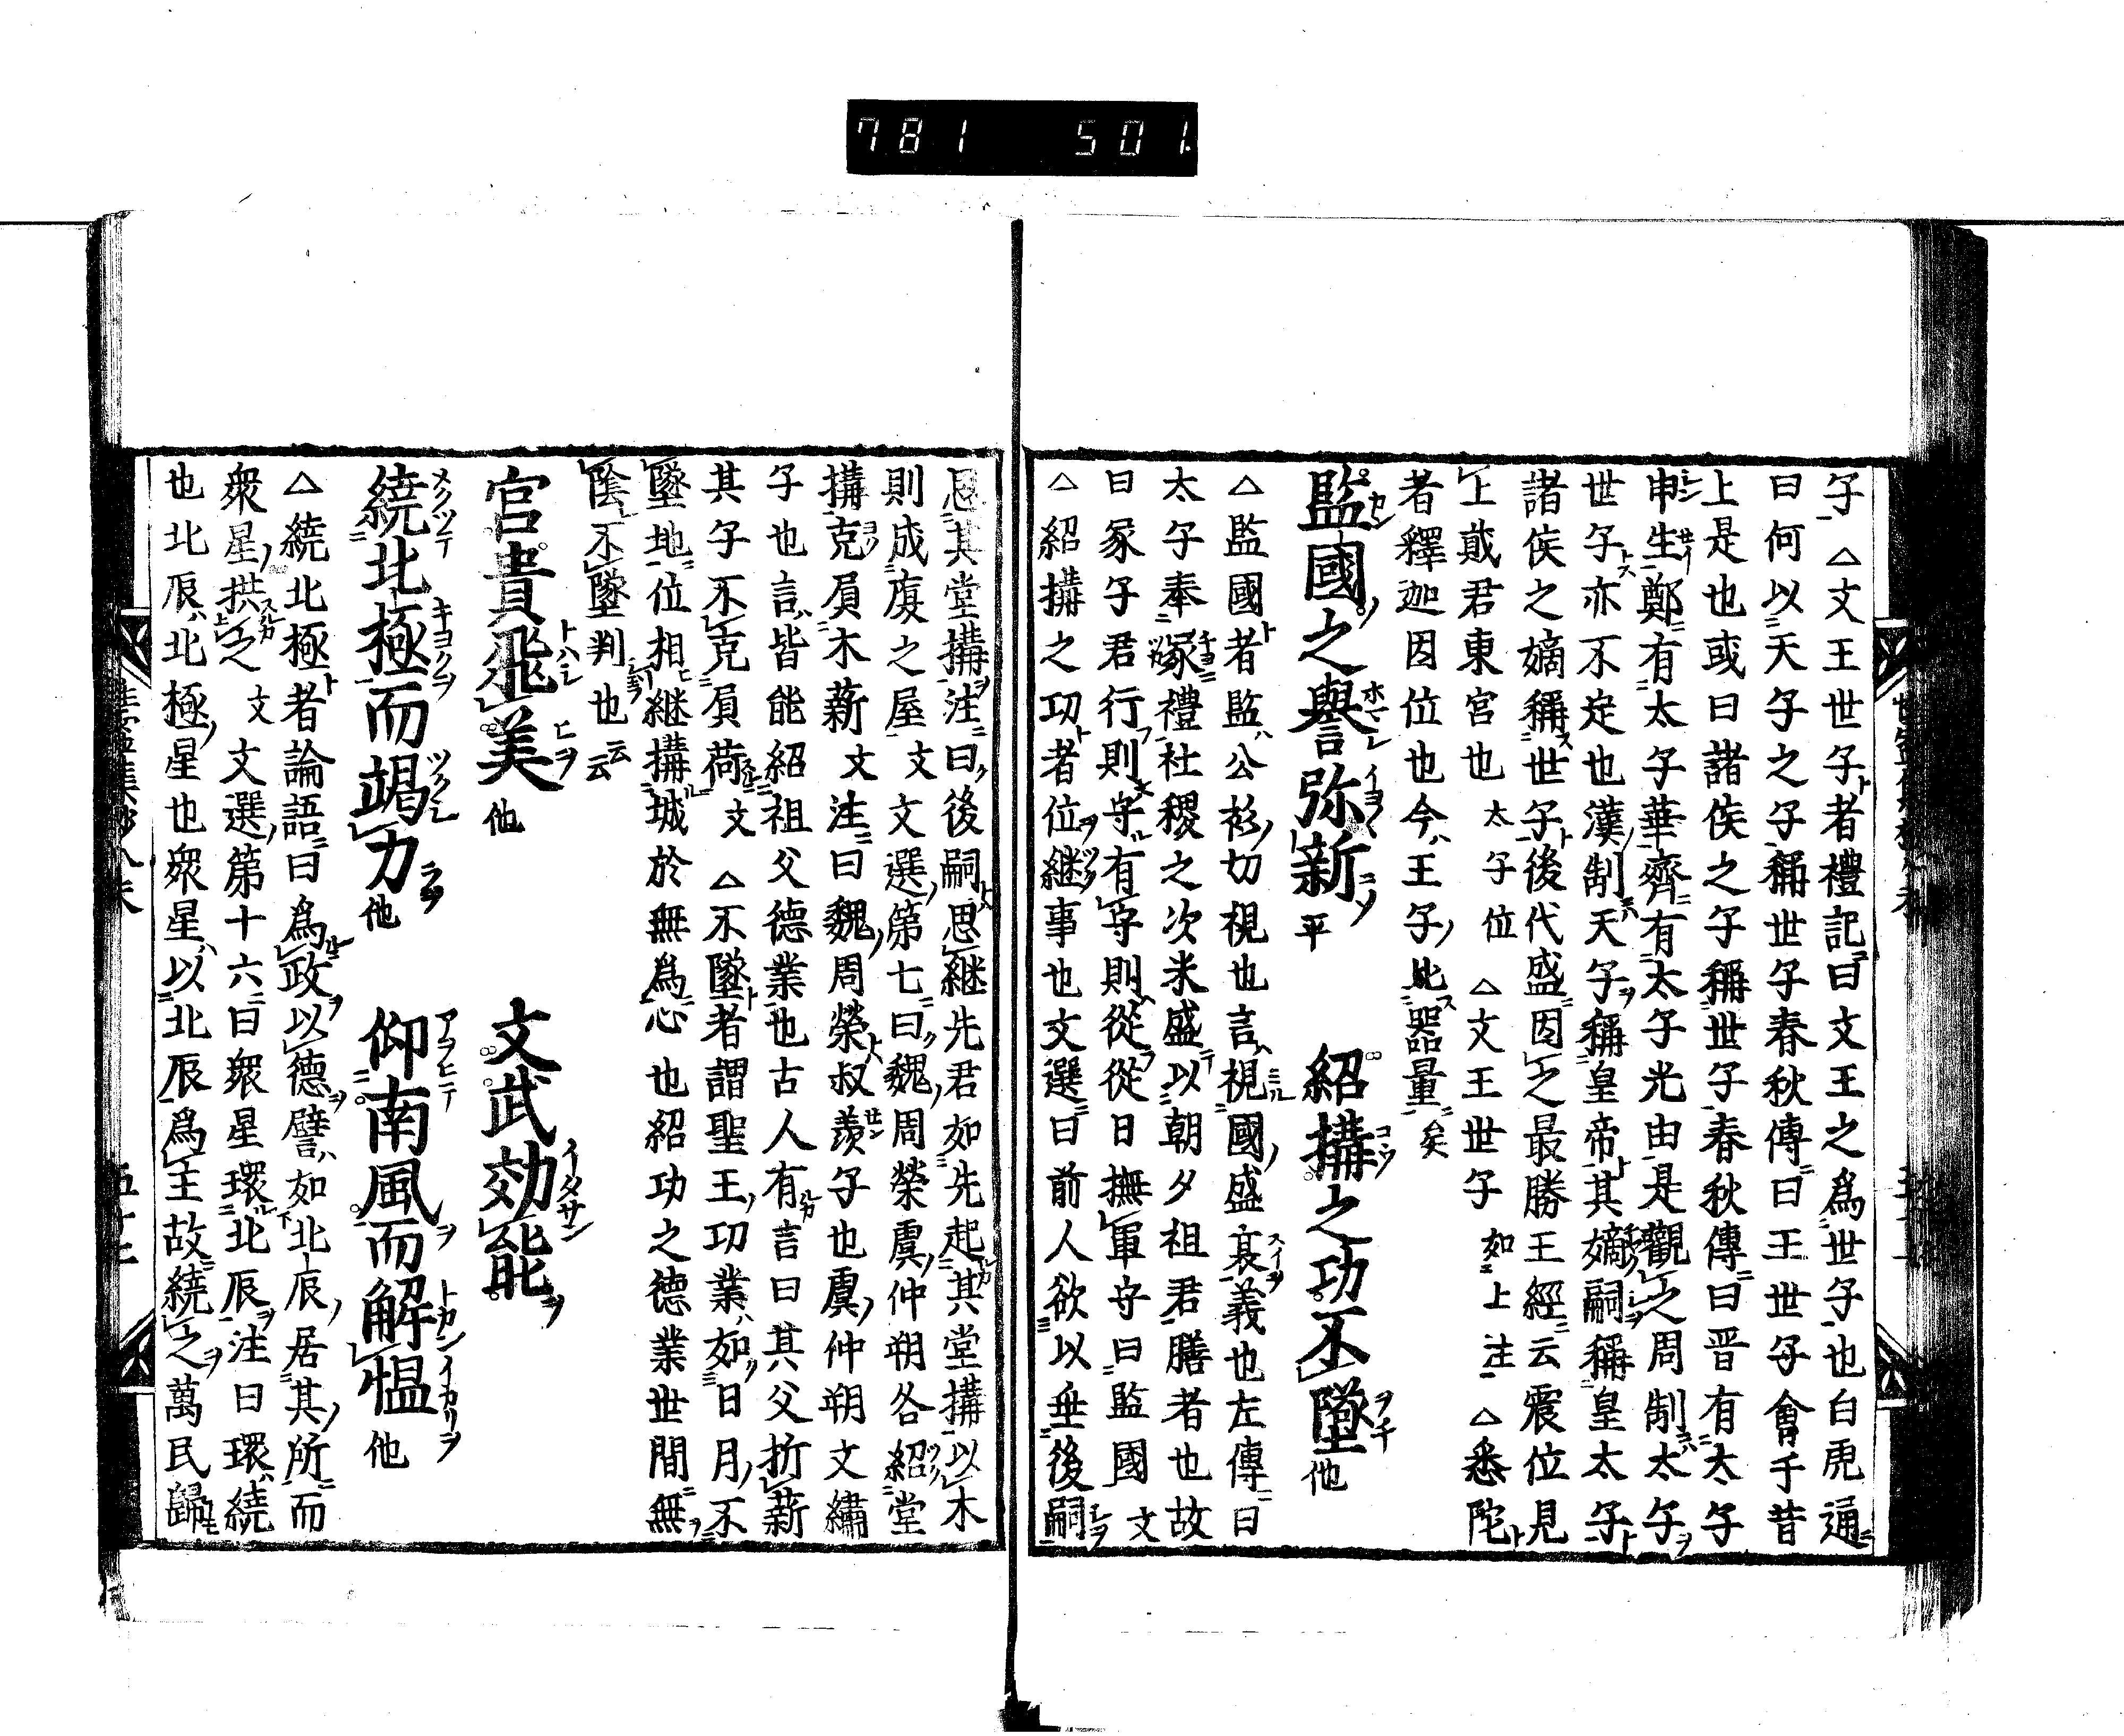 781 501
子△文王世子者禮記曰文王之爲世子也白虎通
曰何以天子之子稱世子春秋傳曰王世子會于昔
上是也或曰諸侯之子稱世子春秋傳曰晋有太子
申生鄭有太子華齊有太子光由是觀之周制太子
世子亦不定也漢制天子稱皇帝其嫡嗣稱皇太子
諸侯之嫡稱世子後代盛因之最勝王經云震位見
上戴君東宮也 太子位 △文王世子 如上注 △悉陀
者釋迦因位也今王子此器量矣
監國之譽弥新平 紹搆之功不墜他
△監國者監公衫切視也言視國盛衰義也左傳曰
太子奉冢禮社稷之次米盛以朝夕祖君膳者也故
曰冢子君行則守有守則從從日撫軍守曰監國文
△紹搆之功者位継事也文選曰前人欲以垂後嗣
思其堂搆注曰後嗣思継先君如先起其堂搆以木
則成廈之屋文文選第七曰魏周榮虞仲朔各紹堂
搆克負木薪文注曰魏周榮叔羨子也虞仲朔文繡
子也言皆能紹祖父德業也古人有言曰其父折薪
其子不克負荷文△不墜者謂聖王功業如日月不
墜地位相継搆城於無爲心也紹功之德業世間無
陰不墜判也云云
官貴飛美他 文武効能
繞北極而竭力他 仰南風而解愠他
△繞北極者論語曰爲政以德譬如北辰居其所而
衆星拱之文文選第十六曰衆星環北辰注曰環繞
也北辰北極星也衆星以北辰爲主故繞之萬民歸